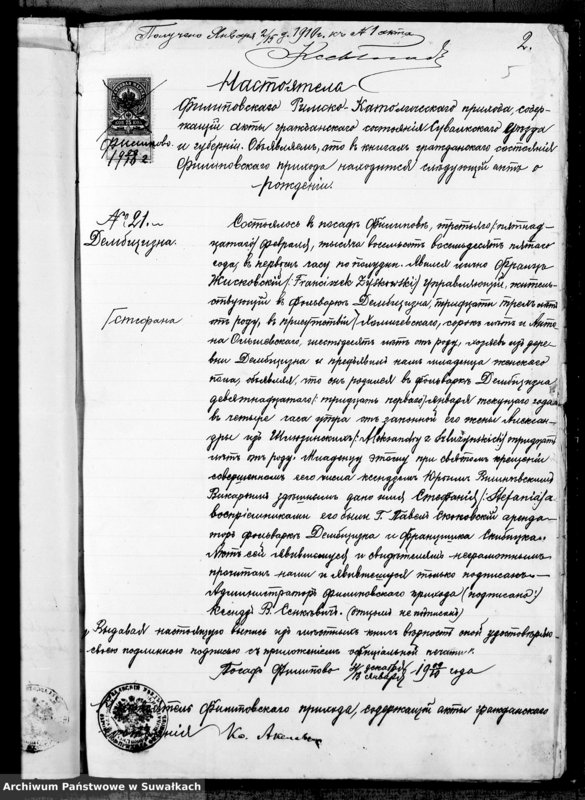 Получено Января 2/15 д. 1910 г. къ № 1 акта
2.
Настоятель
Филиповскаго Римско-Католическаго прихода, содер-
жащій акты гражданскаго состоянія Сувалкскаго уѣзда
и губерніи. Объявляетъ, что въ книгахъ гражданскаго состоянія
Филиповскаго прихода находится слѣдующій актъ о
рожденіи.
Филипово
19 г.
№ 21.
Дембщизна.
Стефана
Состоялось въ посадѣ Филиповѣ, третьяго/пятнад-
цатаго/ февраля, тысяча восемьсотъ восемьдесятъ пятаго
года, въ первомъ часу по полудни. Явился лично Францъ
Жисковскій /Franciszek Zyskowski/ управляющій, житель-
ствующій въ фольваркѣ Дембщизна, тридцати трехъ лѣтъ
отъ роду, въ присутствіи сорока лѣтъ и Анто-
на Ольшевскаго, шестидесяти лѣтъ отъ роду, хозяевъ изъ дерев-
ни Дембщизна и предъявилъ намъ младенца женскаго
пола, объявляя, что онъ родился въ фольваркѣ Дембщизна
девятнадцатаго/тридцать перваго/ января текущаго года
въ четыре часа утра отъ законной его жены Александ-
ры изъ /Aleksandry z / тридцать
лѣтъ отъ роду. Младенцу этому при святомъ крещеніи
совершенномъ сего числа ксендзомъ
Викаріемъ здѣшнимъ дано имя Стефанія /Stefania/ а
воспріемниками его были Г. Павелъ аренда-
торъ фольваркъ Дембщизна и Францишка
Актъ сей явившемуся и свидѣтелямъ неграмотнымъ
прочитанъ нами и явившемуся только подписанъ.
Администраторъ Филиповскаго прихода /подписано:/
Ксендзъ В. Сенкевичъ. (отцомъ не подписан)
"Выдавая настоящую выпись изъ книгъ вѣрность оной удостовѣряю
своею подлинною подписью съ приложеніемъ оффиціальной печати."
Посадъ Филипово декабря января 19 года
Настоятель Филиповскаго прихода, содержащій акты гражданскаго
состоянія Кс.
Archiwum Państwowe w Suwałkach